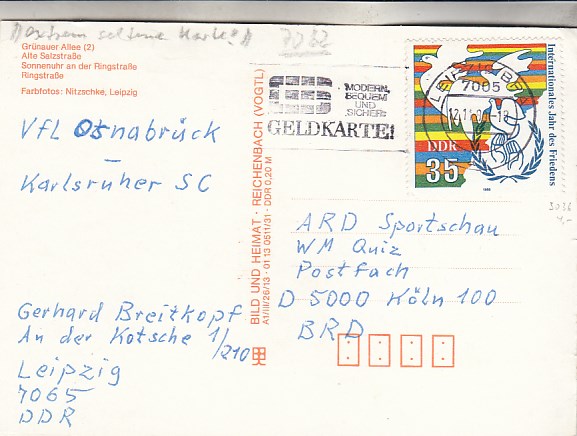 Grünauer Allee (2)
Alte Salzstraße
Sonnenuhr an der Ringstraße
Ringstraße
Farbfotos: Nitzschke, Leipzig
VfL Osnabrück
–
Karlsruher SC
Gerhard Breitkopf
An der Kotsche 1/210
Leipzig
7065
DDR
BILD UND HEIMAT · REICHENBACH (VOGTL)
A1/III/26/13 · 01 13 0611/31 · DDR 0,20 M
MODERN,
BEQUEM
UND
SICHER:
GELDKARTE!
7005
Internationales Jahr des Friedens
DDR
35
1986
ARD Sportschau
WM Quiz
Postfach
D 5000 Köln 100
BRD
3036